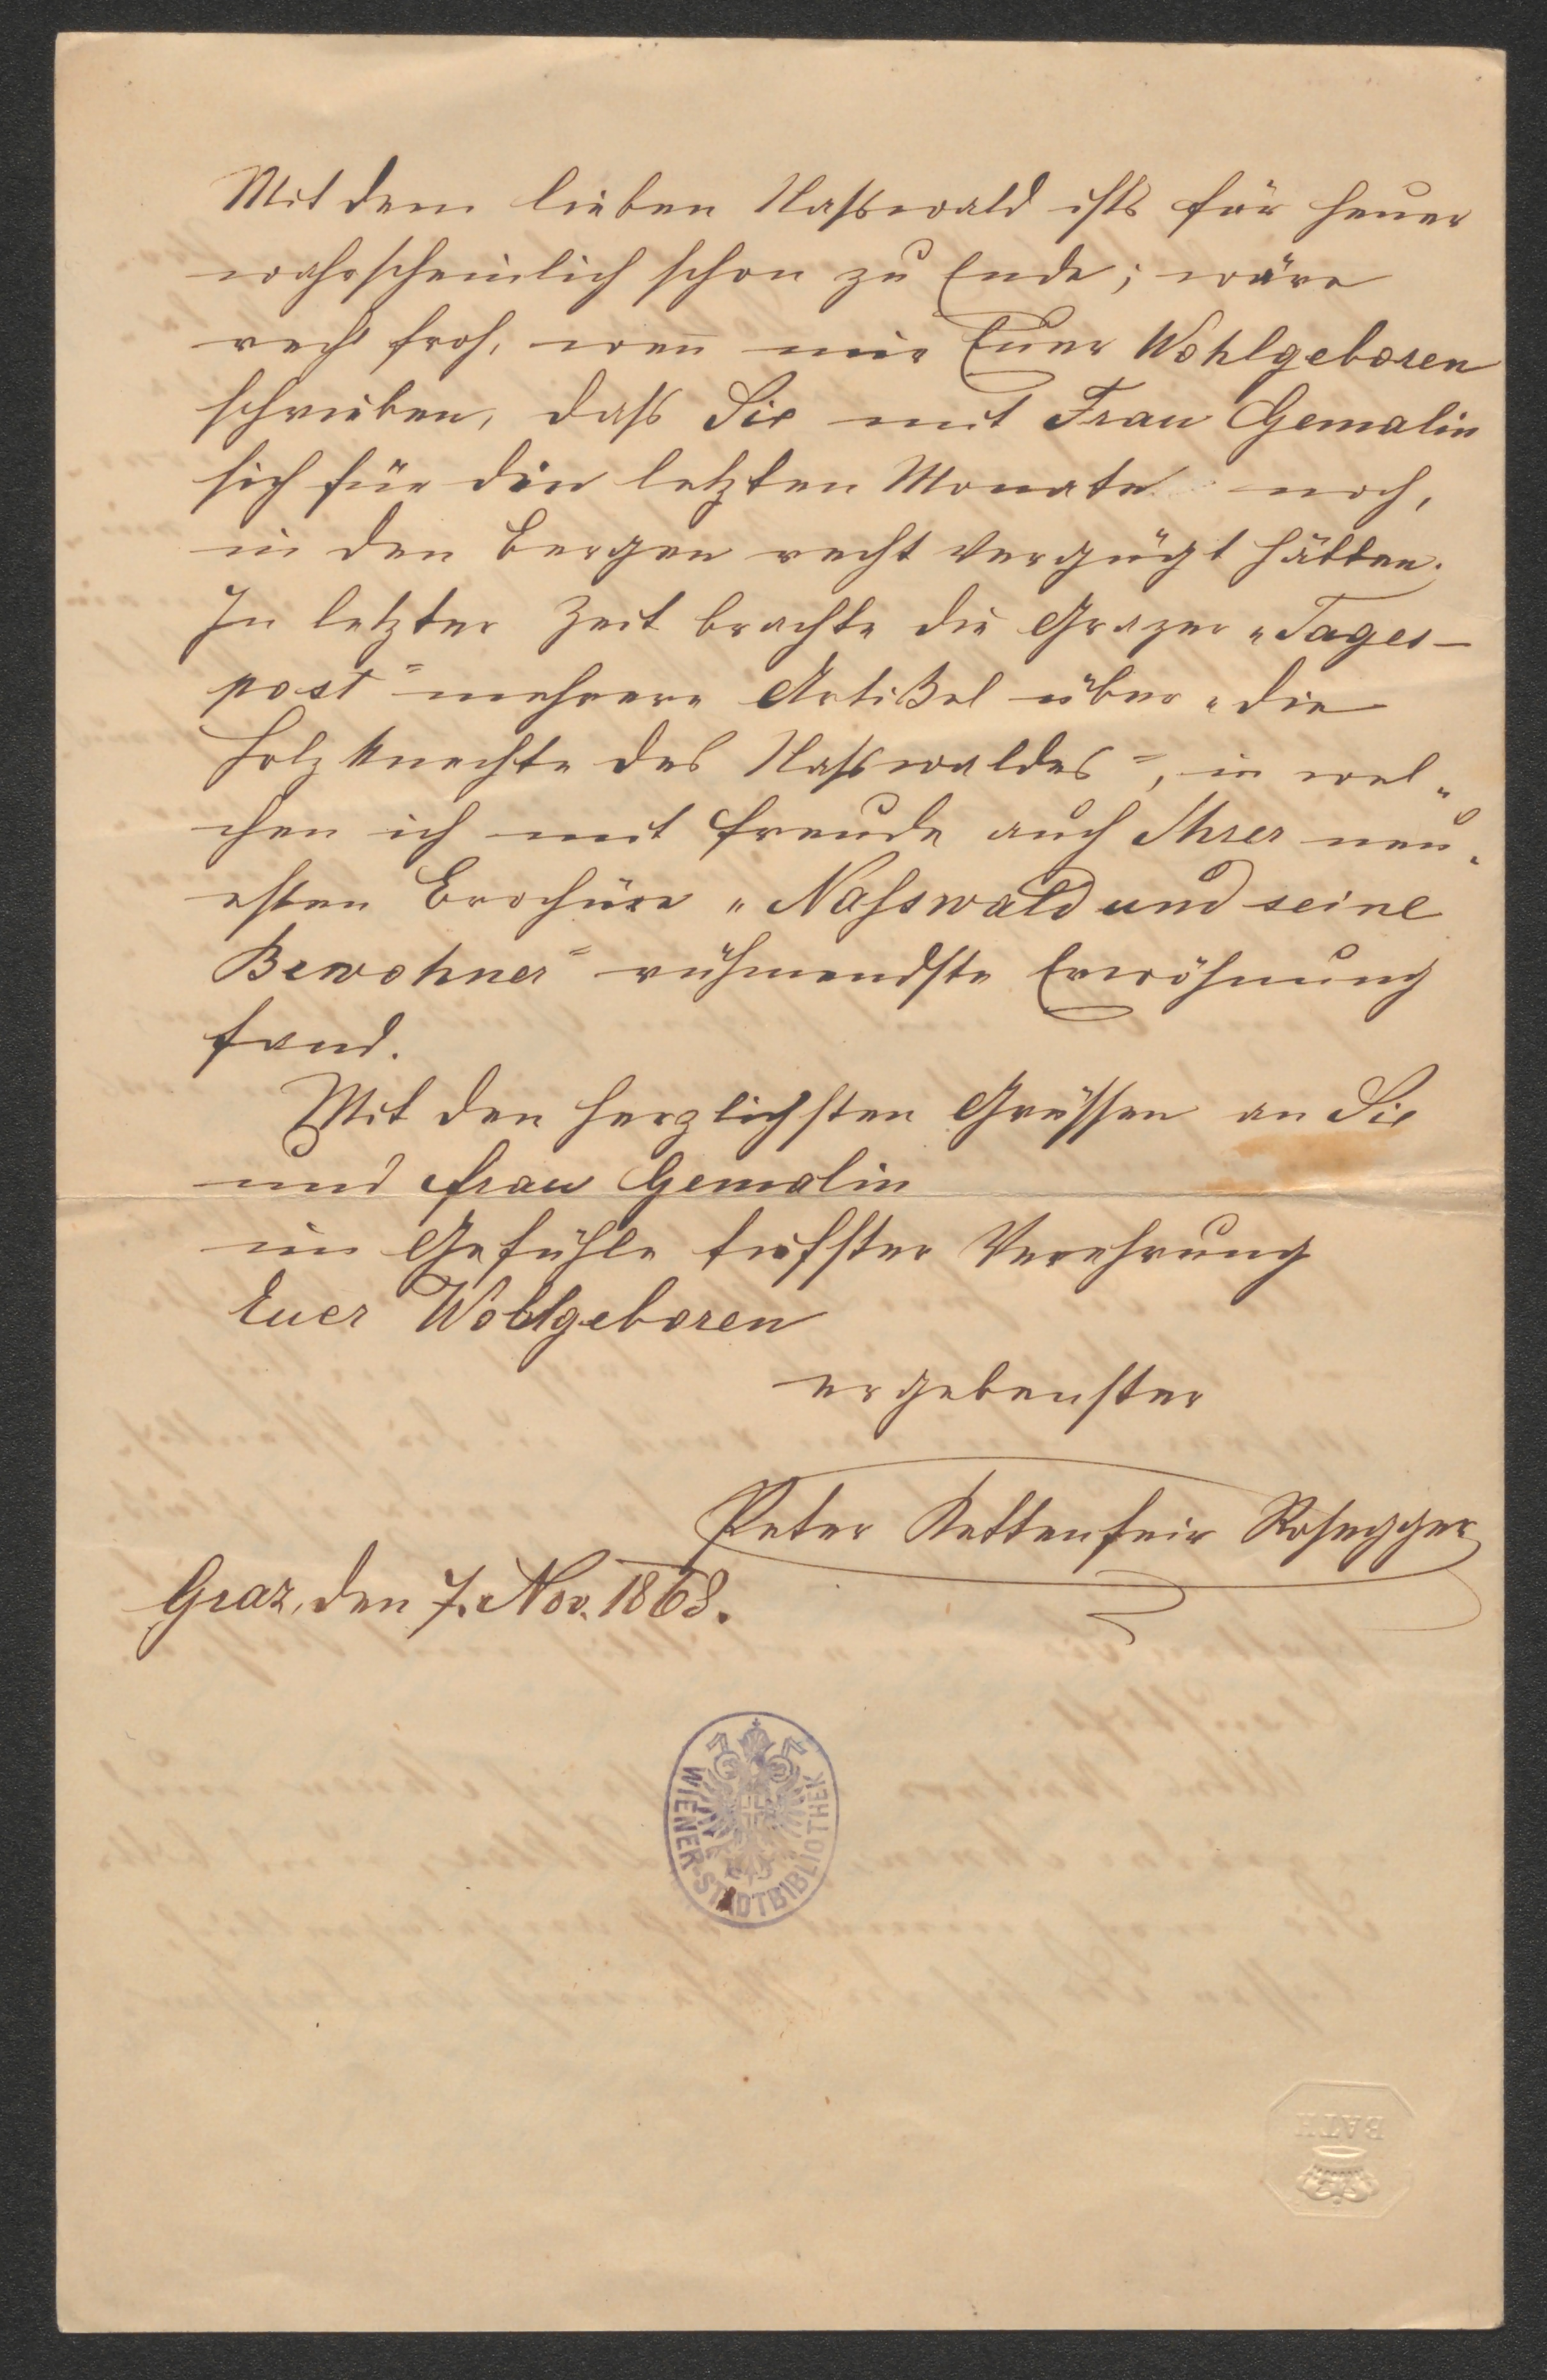 Mit dem lieben Nasswald ists für heuer
wahrscheinlich schon zu Ende; wäre
recht froh, wen̄ mir Euer Wohlgeboren
schrieben, dass Sie mit Frau Gemalin
sich für die letzten Monate noch,
in den Bergen recht vergügt hätten.
In letzter Zeit brachte die Grazer „Tages-
post" mehrere Artikel über „die
Holzknechte des Nasswaldes", in wel-
chen ich mit Freude auch Ihrer neu-
esten Brochüre „Nasswald und seine
Bewohner" rühmendste Erwähnung
fand.
Mit den herzlichsten Grüssen an Sie
und Frau Gemalin
im Gefühle tiefster Verehrung
Euer Wohlgeboren
ergebenster
Peter Kettenfeier Rosegger
Graz, den 7. Nov. 1868.
WIENER-STADTBIBLIOTHEK
BATH